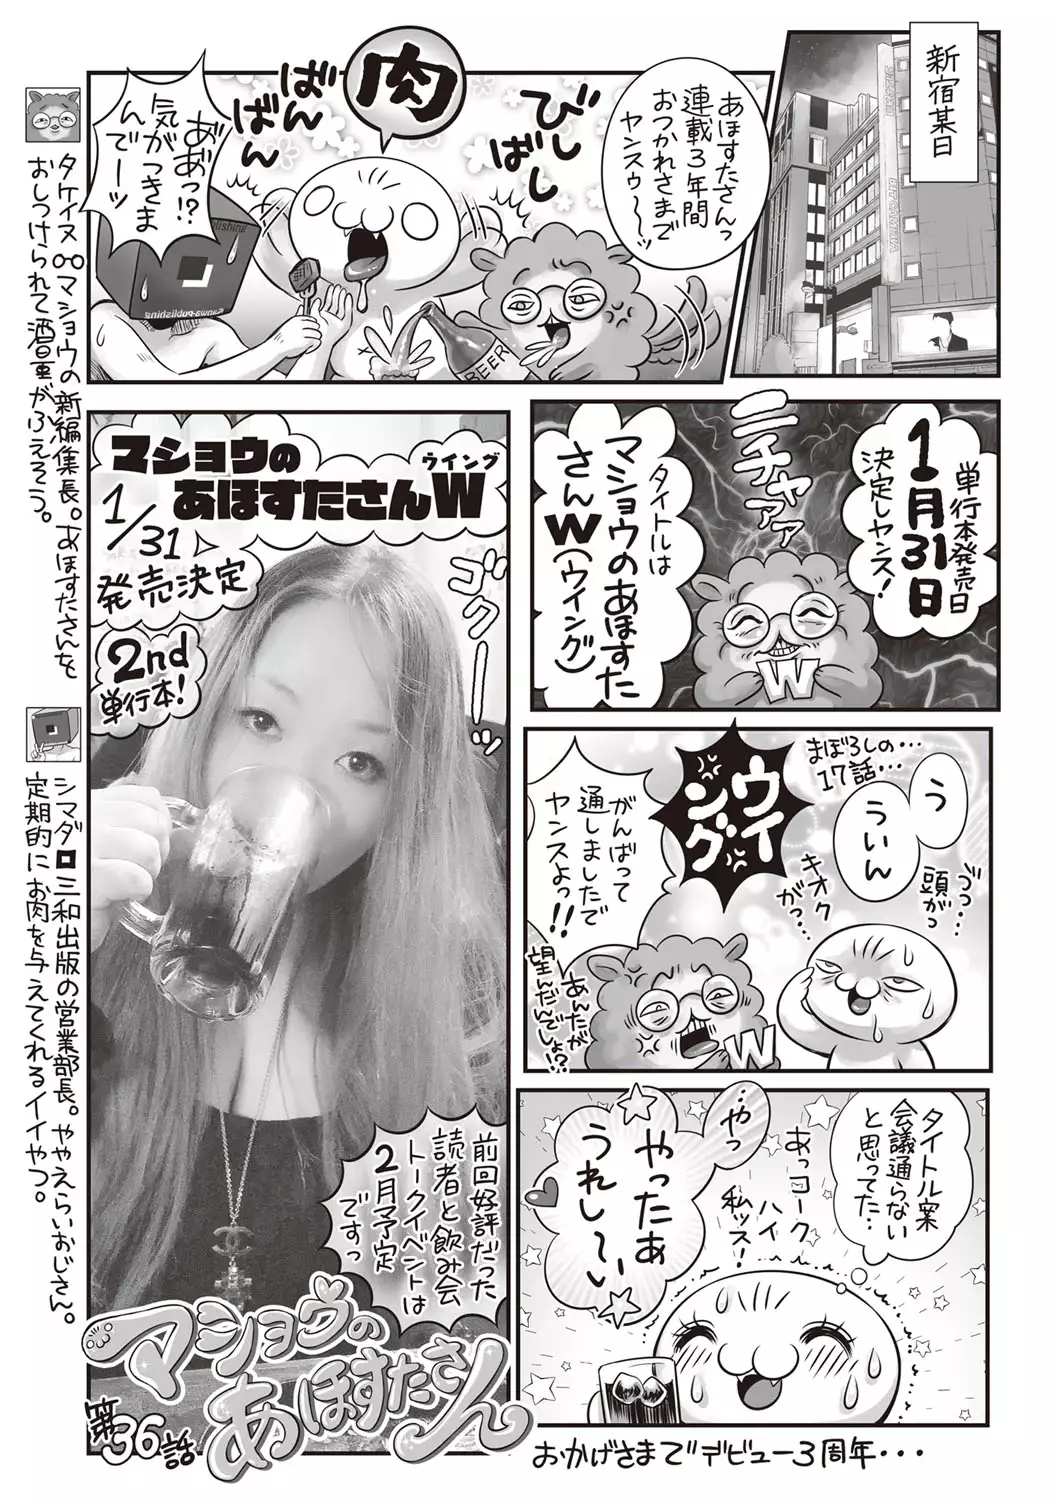 新宿某日
あほすたさんっ
連載3年間
おつかれさまで
ヤンスゥ〜〜ッ
びし
ばし
肉
ばん
ばん
あ゛あ゛っ!?
気がつきま
んで〜ッ
BEER
タケイヌ
マショウの新編集長。あほすたさんを
おしつけられて酒量がふえそう。
シマダ
三和出版の営業部長。ややえらいおじさん。
定期的にお肉を与えてくれるイイやつ。
単行本発売日
1月31日
決定しヤンス!
ニチャアァァ
タイトルは
マショウのあほすた
さんW(ウイング)
W
まぼろしの…
17話…
う
ういん
づっ…
頭がっ
キオク
がっ…
ウイ
ング
がんばって
通しましたで
ヤンスよっ!!
あんたが
望んだんでしょ!?
W
タイトル案
会議通らない
と思ってた…
あっコーク
ハイ
私ッス!
…やっ
やったぁ
うれし〜い
おかげさまでデビュー3周年・・・
マショウの
あほすたさんW
ウイング
1/31
発売決定
2nd
単行本!
ゴクーーッ
前回好評だった
読者と飲み会
トークイベントは
2月予定
ですっ
マショウの
あほすたさん
第36話